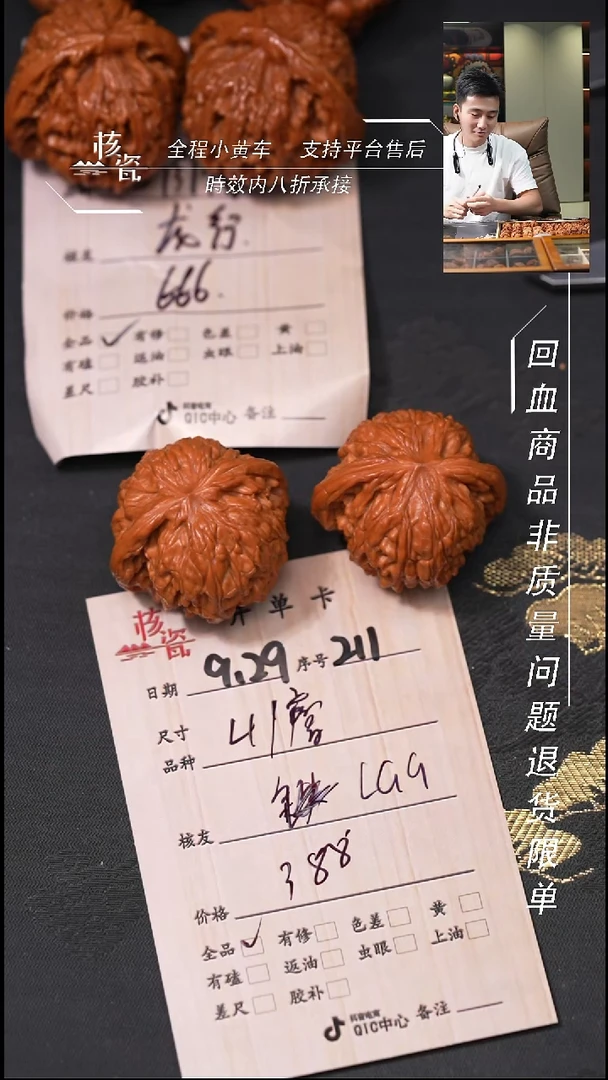 核瓷
全程小黄车 支持平台售后
時效内八折承接
回血商品非质量问题退货限单
龙行
核友
666.
价格
全品 ✓ 有修 色差 黄
有磕 返油 虫眼 上油
差尺 胶补
抖音电商
QIC中心 备注
核瓷
单卡
日期 9.29 序号 211
尺寸 41富
品种
LGG
核友
388
价格
全品 ✓ 有修 色差 黄
有磕 返油 虫眼 上油
差尺 胶补
抖音电商
QIC中心 备注